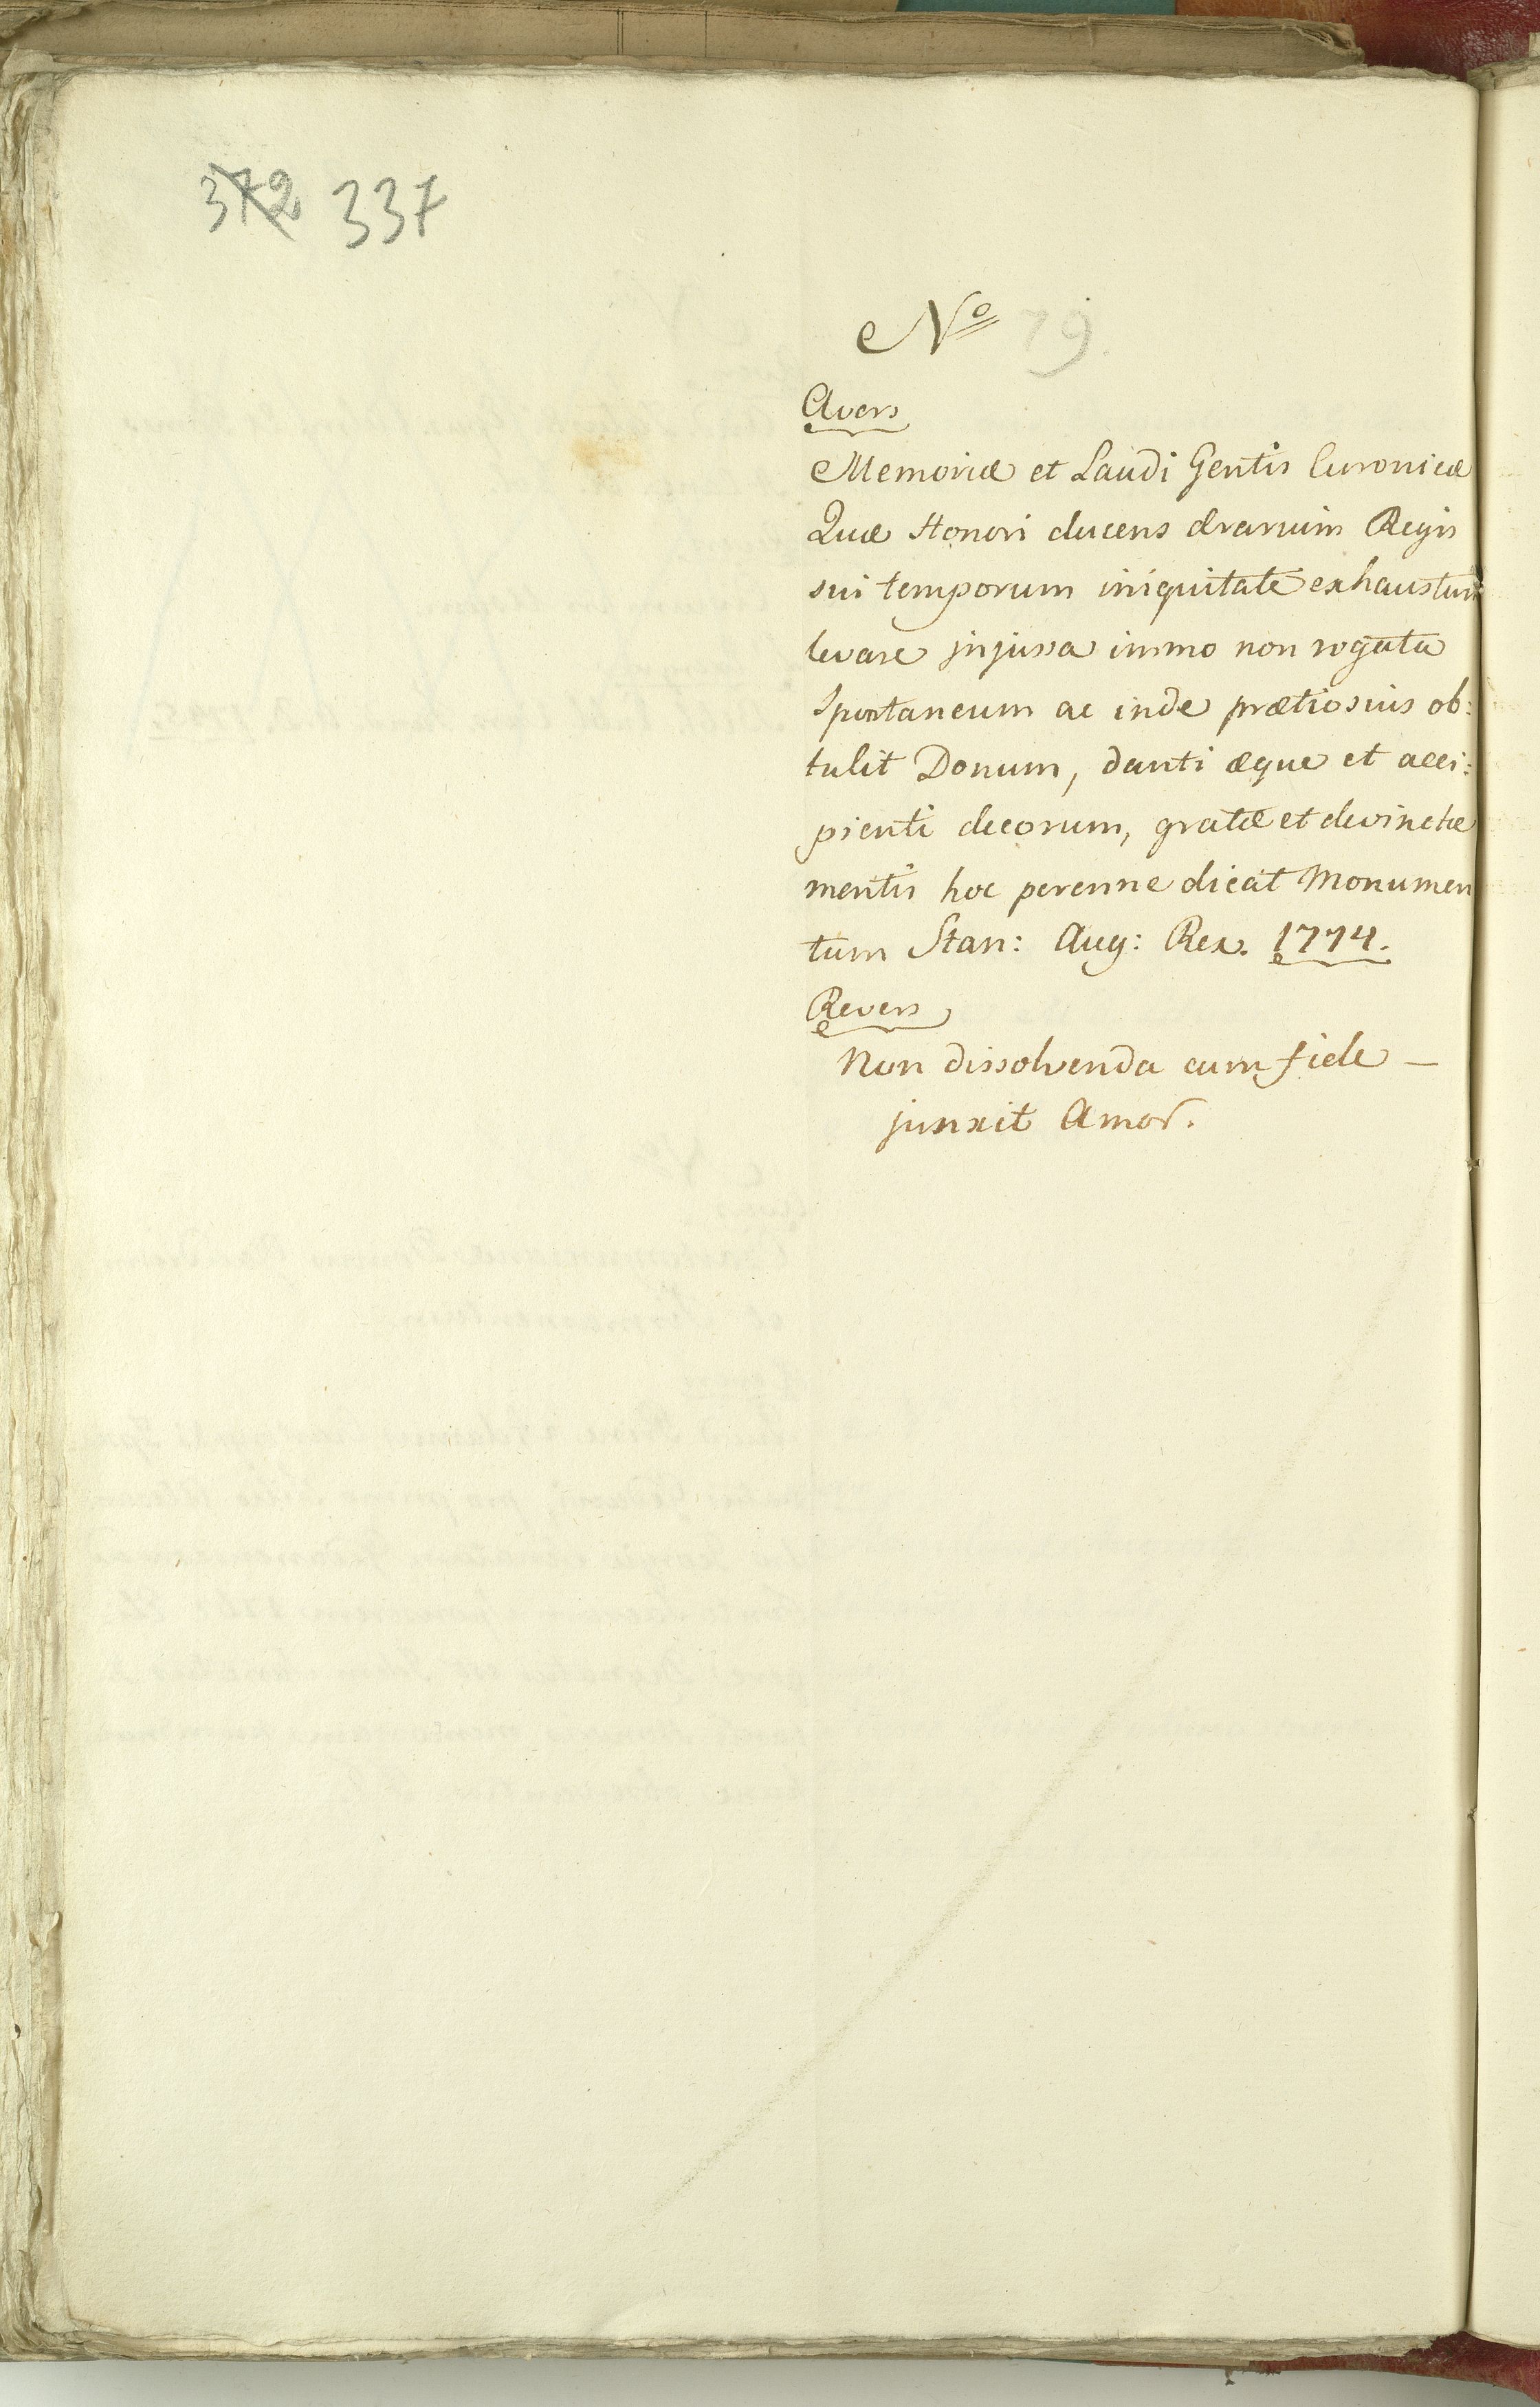 372 337
No 79.
Avers
Memoriæ et Laudi Gentis Curonicæ
Quæ Honori ducens ærarium Regis
sui temporum iniquitate exhaustum
levare injussa immo non rogata
Spontaneum ac inde prætiosius ob:
tulit Donum, danti æque et acci:
pienti decorum, gratæ et devinctæ
mentis hoc perenne dicat Monumen
tum Stan: Aug: Rex. 1774.
Revers
Non dissolvenda cum fide —
junxit Amor.